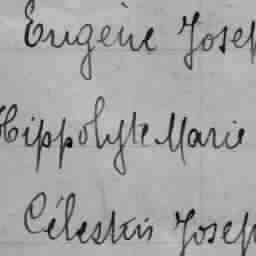 Eugène Josep
Hippolyte Marie
Célestin Josep